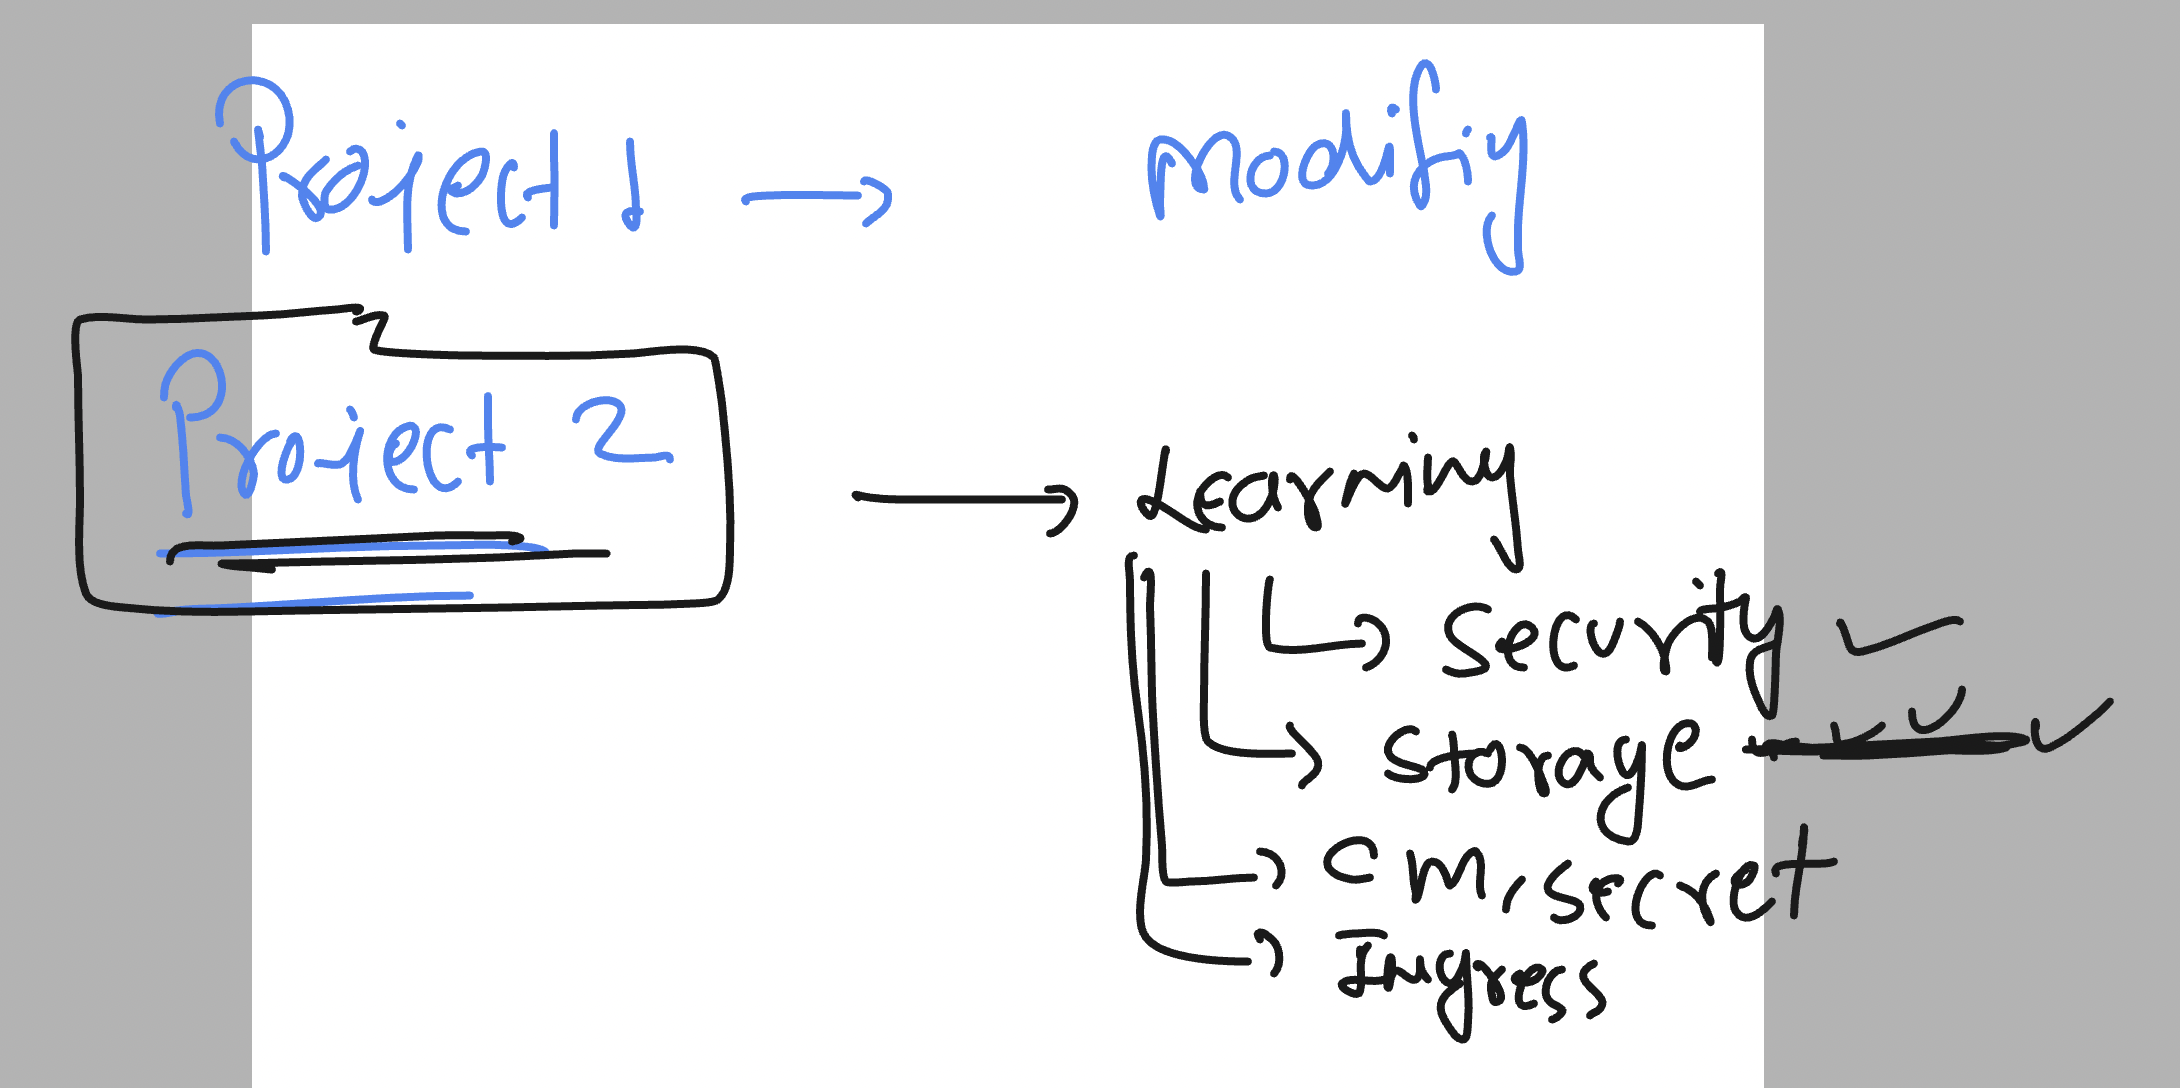 Project 1 → modifiy
Project 2 → Learning
→ Security ✓
→ Storage ✓ ✓ ✓
→ CM, secret
→ Ingress